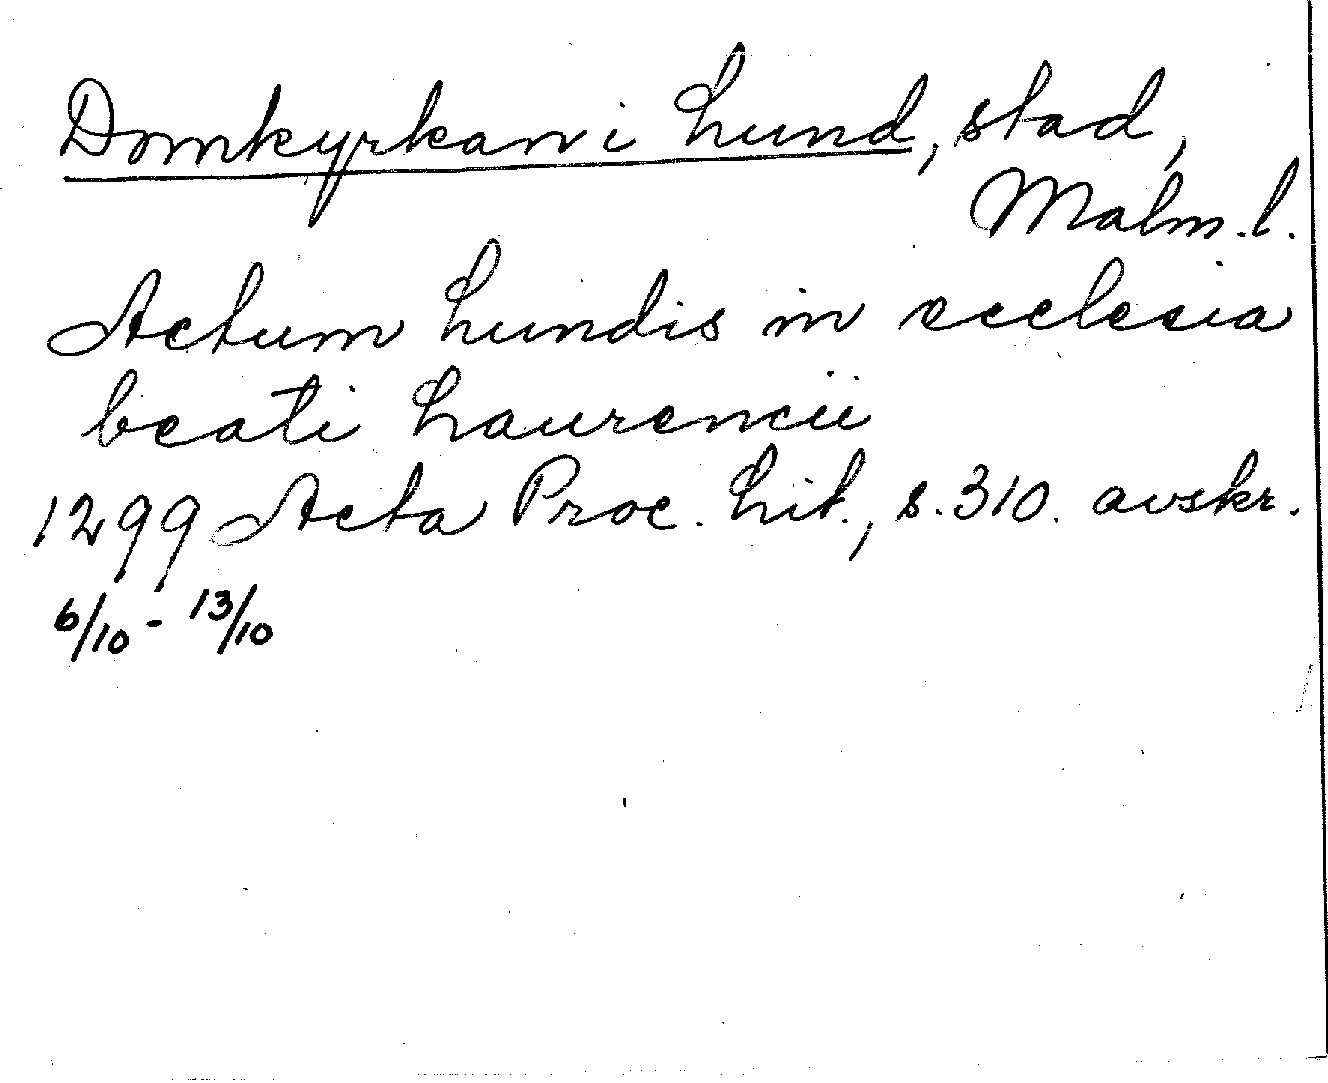 Domkyrkan i Lund, stad,
Malm.l.
Actum Lundis in ecclesia
beati Laurencii
1299 Acta Proc. Lit., s.310. avskr.
6/10 - 13/10